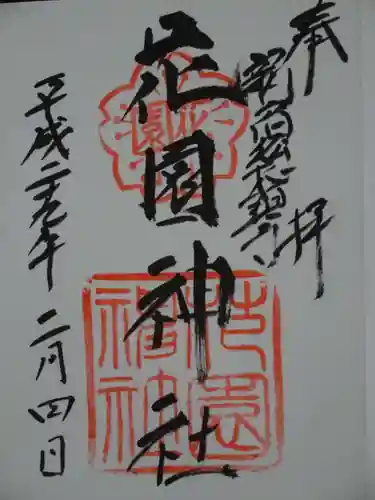 奉拝
新宿総鎮守
花園神社
平成二十九年二月四日
花園
花園神社